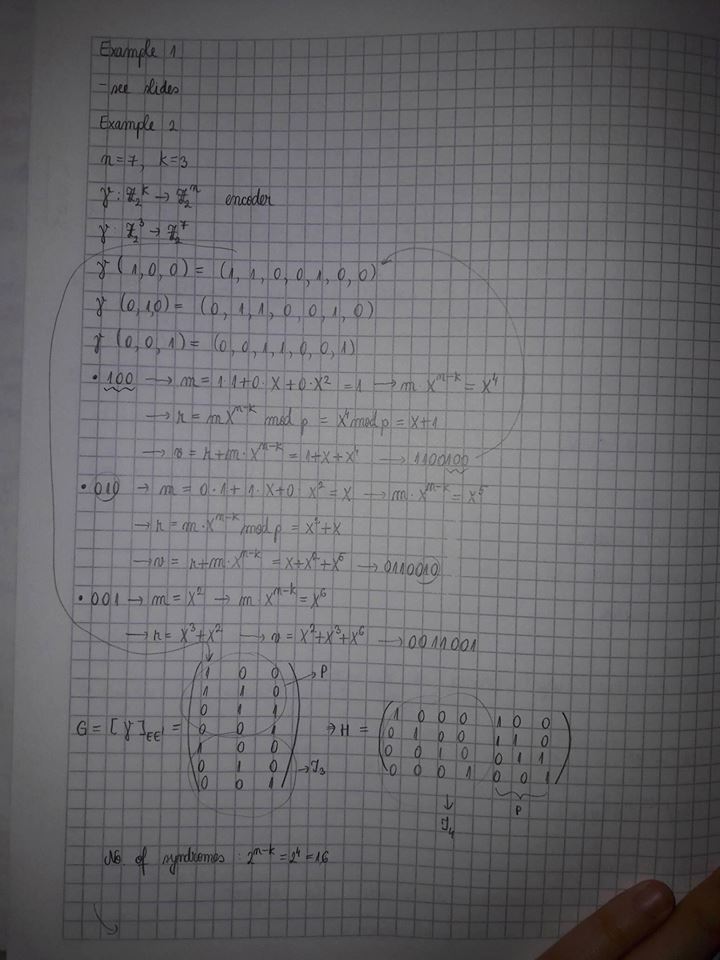 Example 1
- see slides
Example 2
n=7, k=3
γ: ℤ₂ᵏ → ℤ₂ⁿ encoder
γ: ℤ₂³ → ℤ₂⁷
γ (1,0,0) = (1, 1, 0, 0, 1, 0, 0)
γ (0,1,0) = (0, 1, 1, 0, 0, 1, 0)
γ (0, 0, 1) = (0, 0, 1, 1, 0, 0, 1)
• 100 → m = 1·1+0·X+0·X² = 1 → m·X^{n-k} = X⁴
→ r = mX^{n-k} mod p = X⁴ mod p = X+1
→ v = r+m·X^{n-k} = 1+X+X⁴ → 1100100
• 010 → m = 0·1+1·X+0·X² = X → m·X^{n-k} = X⁵
→ r = m·X^{n-k} mod p = X²+X
→ v = r+m·X^{n-k} = X+X²+X⁵ → 0110010
• 001 → m = X² → m·X^{n-k} = X⁶
→ r = X³+X² → v = X²+X³+X⁶ → 0011001
1 0 0 → P
1 1 0
0 1 1
G = [γ]_{EE'} = 0 0 1 ⇒ H =
1 0 0
0 1 0 → I₃
0 0 1
1 0 0 0 1 0 0
0 1 0 0 1 1 0
0 0 1 0 0 1 1
0 0 0 1 0 0 1
↓ P
I₄
No. of syndromes: 2^{n-k} = 2⁴ = 16